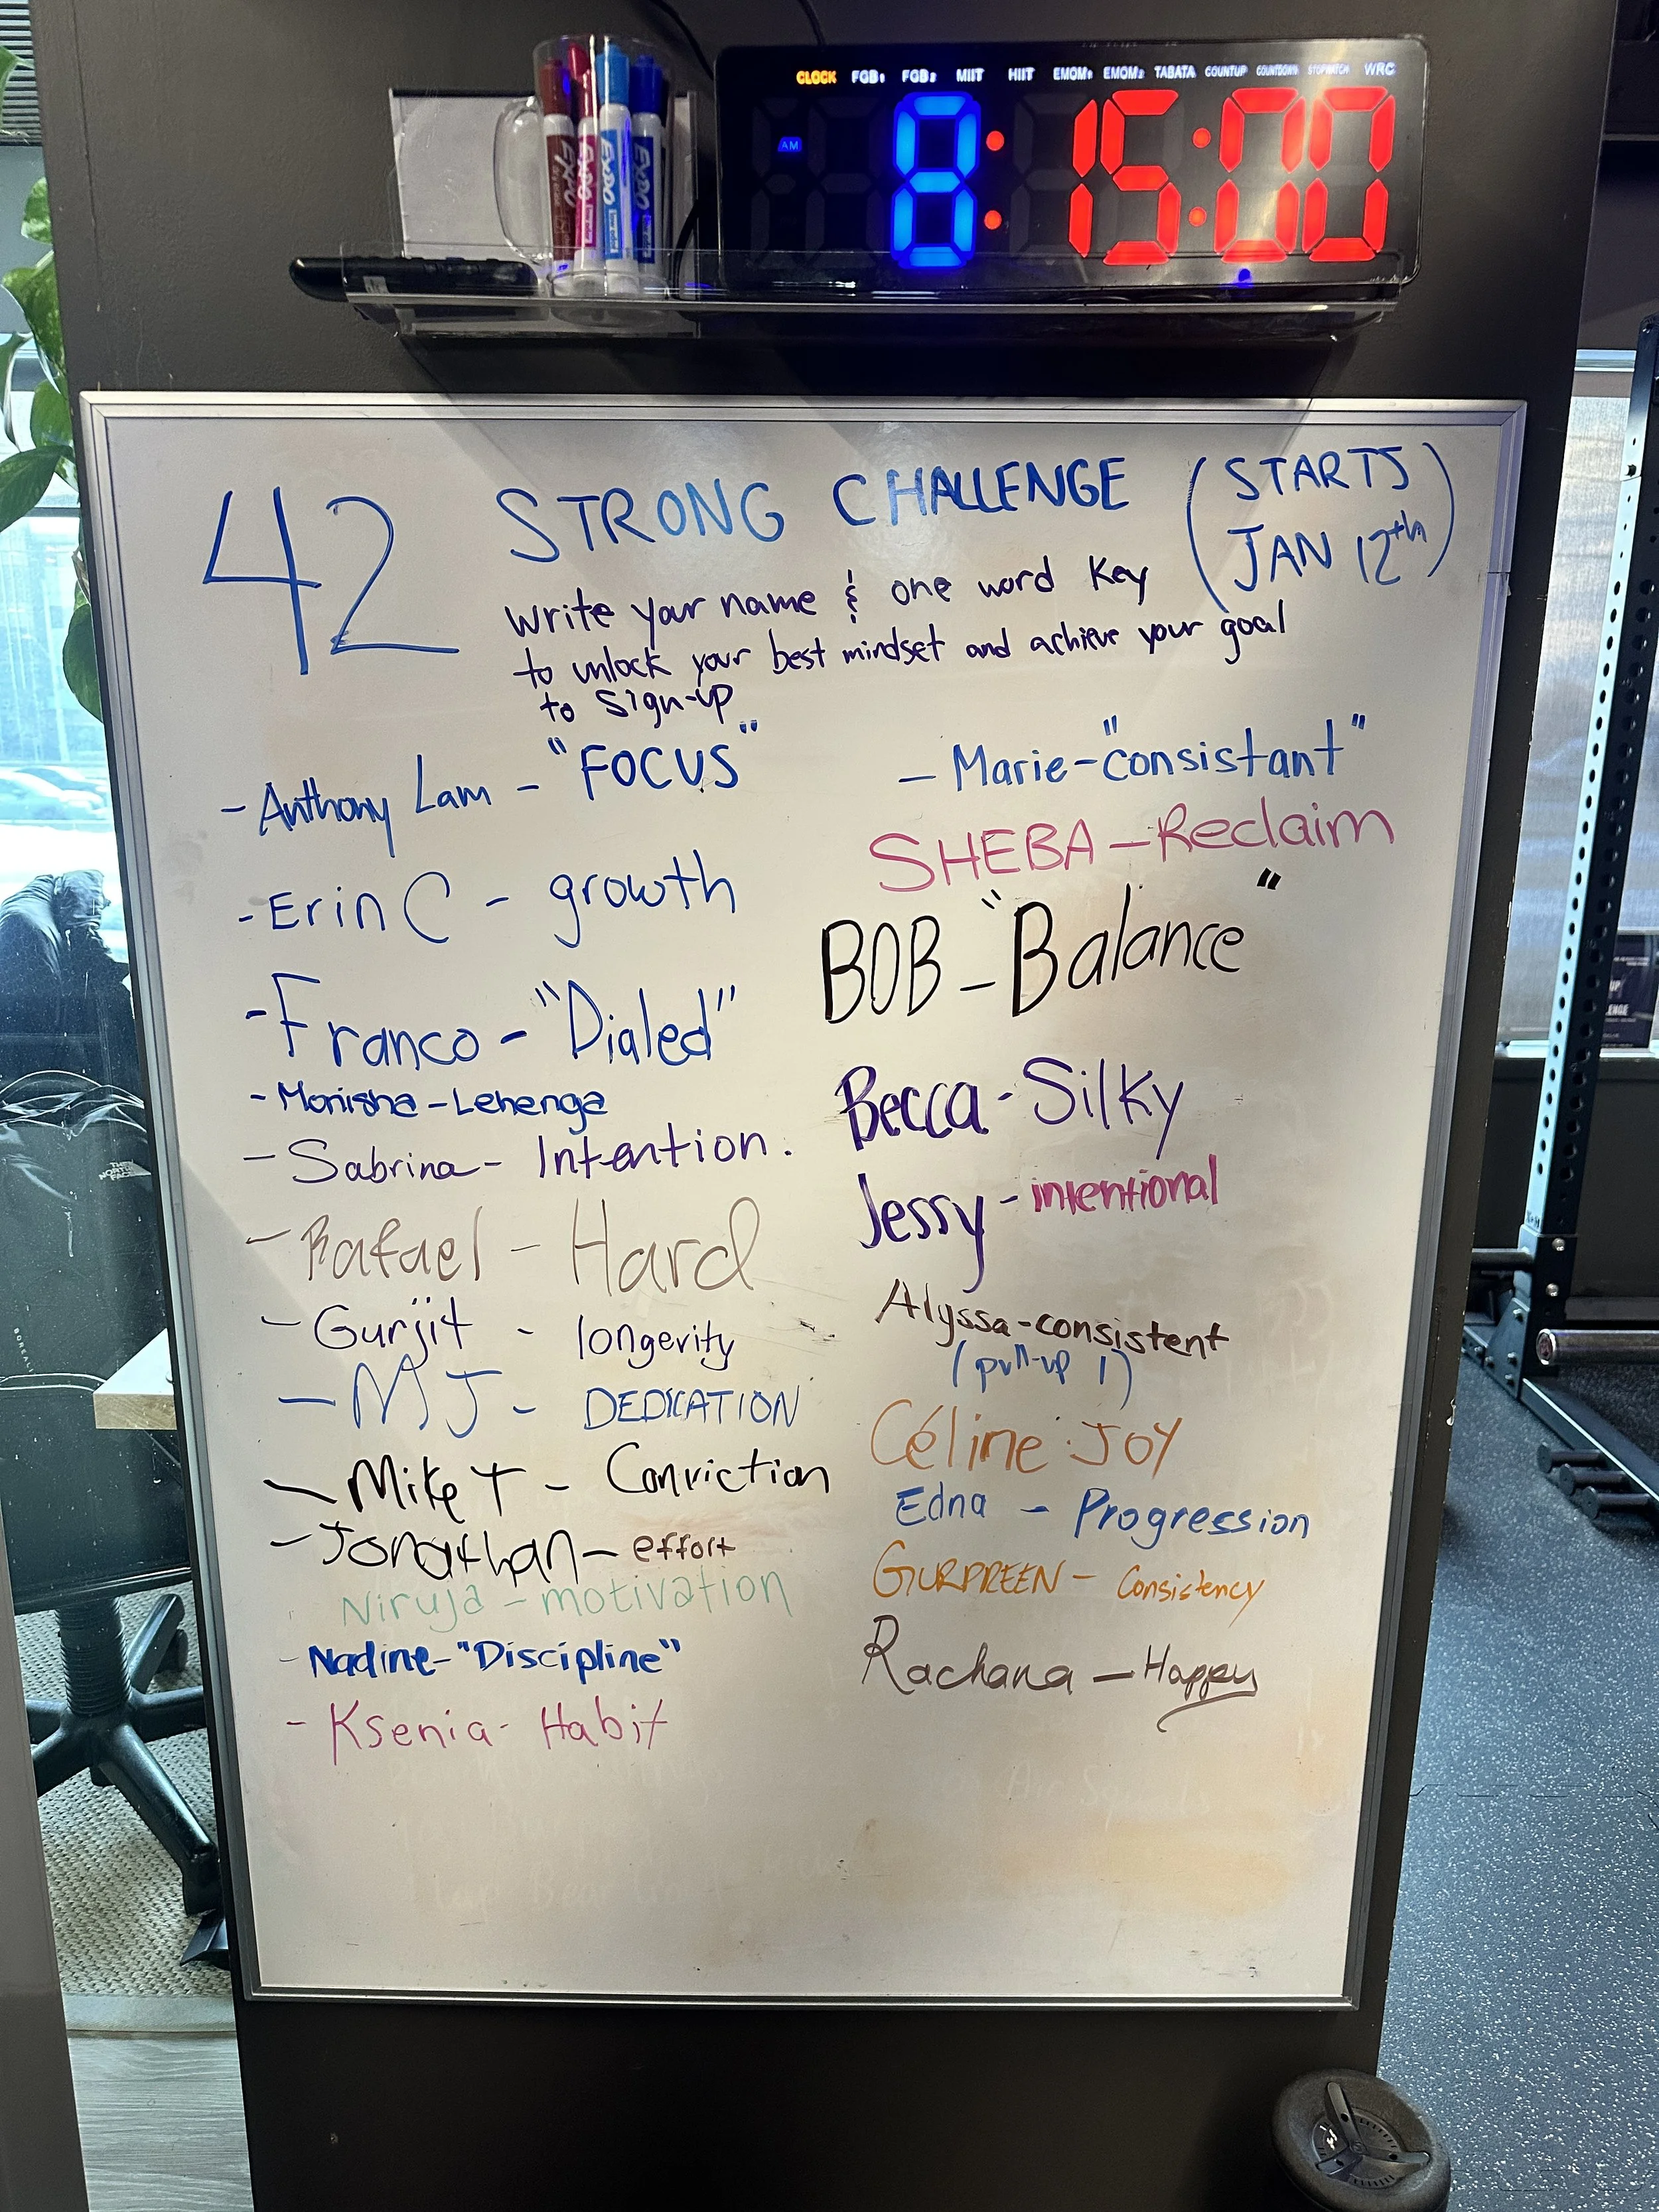 CLOCK FGB1 FGB2 MIIT HIIT EMOM1 EMOM2 TABATA COUNTUP COUNTDOWN STOPWATCH WRC
AM 8:15:00
EXPO EXPO EXPO EXPO
42 STRONG CHALLENGE (STARTS JAN 12th)
write your name & one word key
to unlock your best mindset and achieve your goal
to sign-up
- Anthony Lam - "FOCUS"
- Erin C - growth
- Franco - "Dialed"
- Monisha - Lehenga
- Sabrina - Intention.
- Rafael - Hard
- Gurjit - longerity
- MJ - DEDICATION
- Mike T - Conviction
- Jonathan - effort
Niruja - motivation
- Nadine - "Discipline"
- Ksenia - Habit
- Marie - "consistant"
SHEBA - Reclaim
BOB - "Balance"
Becca - Silky
Jessy - intentional
Alyssa - consistent
(pull-up 1)
Céline JOY
Edna - Progression
GURPREEN - Consistency
Rachana - Happy
THE NORTH FACE